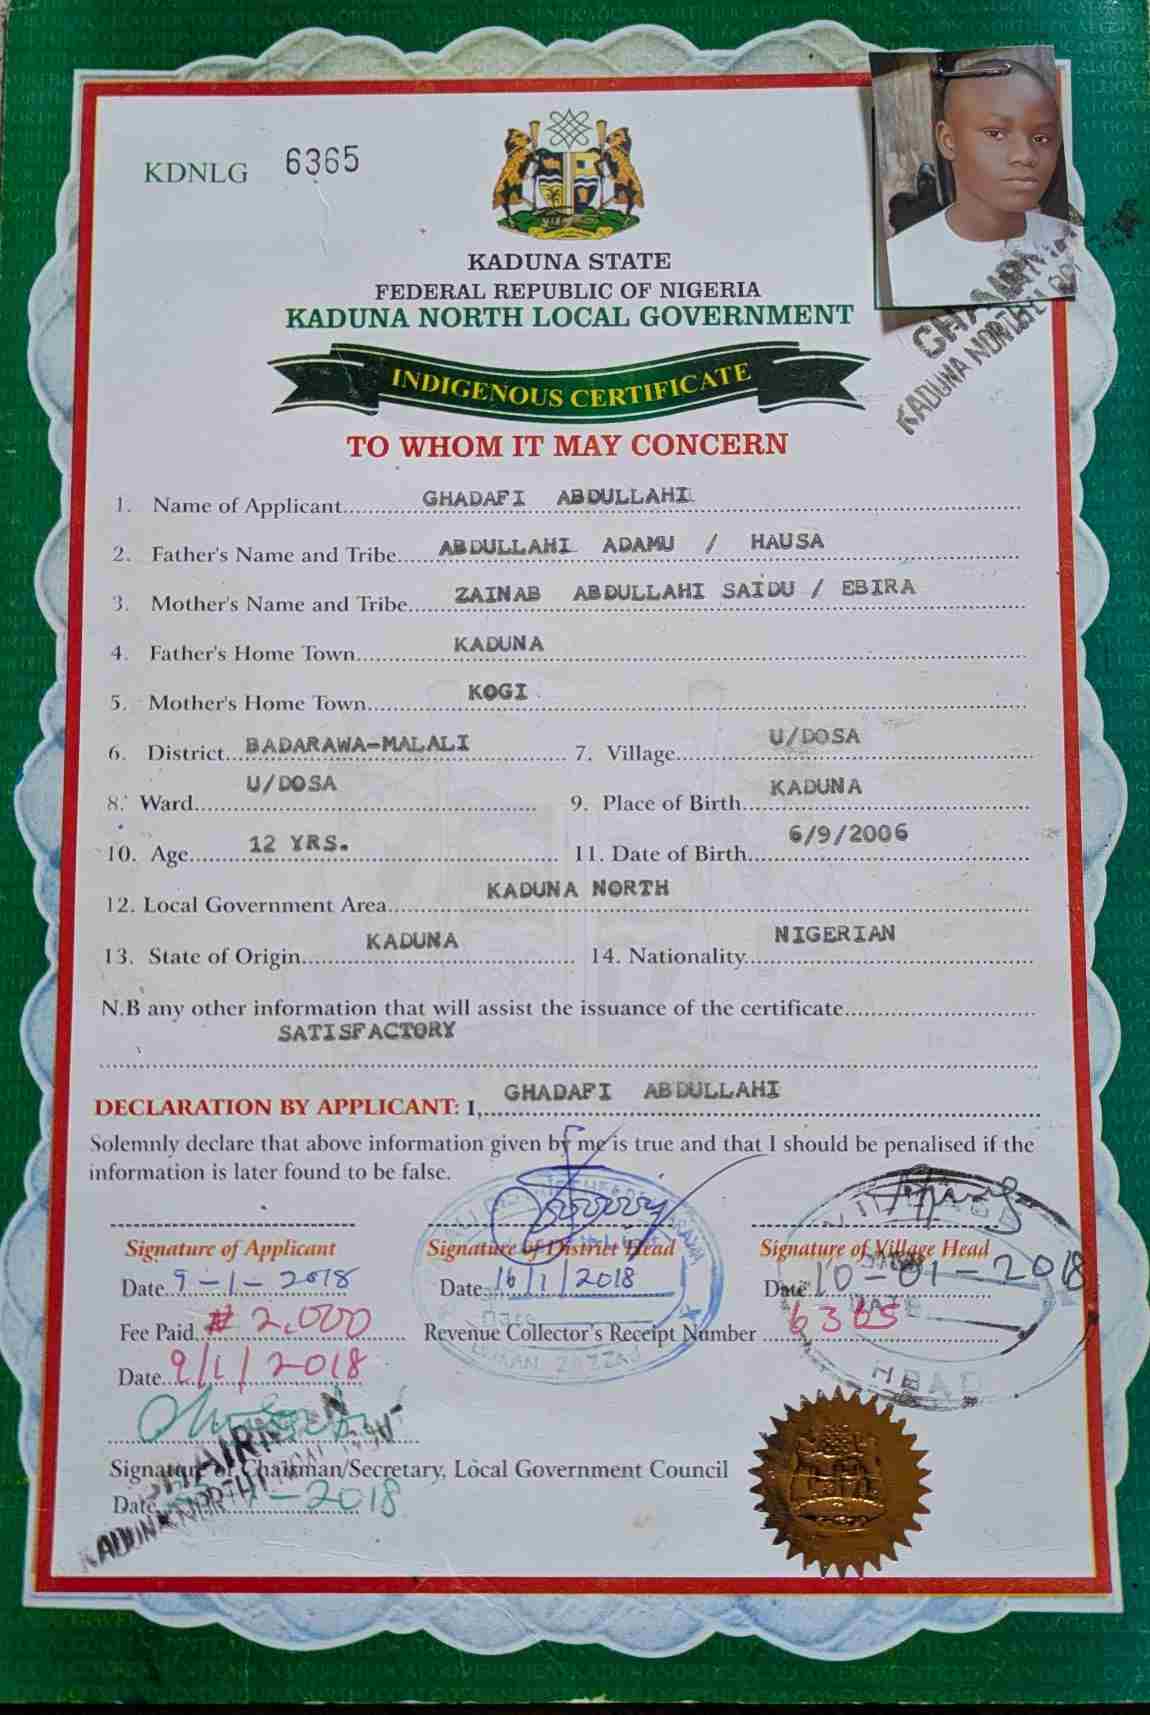 KDNLG 6365
KADUNA STATE
FEDERAL REPUBLIC OF NIGERIA
KADUNA NORTH LOCAL GOVERNMENT
INDIGENOUS CERTIFICATE
TO WHOM IT MAY CONCERN
CHAIRMAN
KADUNA NORTH
1. Name of Applicant GHADAFI ABDULLAHI
2. Father's Name and Tribe ABDULLAHI ADAMU / HAUSA
3. Mother's Name and Tribe ZAINAB ABDULLAHI SAIDU / EBIRA
4. Father's Home Town KADUNA
5. Mother's Home Town KOGI
6. District BADARAWA-MALALI 7. Village U/DOSA
8. Ward U/DOSA 9. Place of Birth KADUNA
10. Age 12 YRS. 11. Date of Birth 6/9/2006
12. Local Government Area KADUNA NORTH
13. State of Origin KADUNA 14. Nationality NIGERIAN
N.B any other information that will assist the issuance of the certificate
SATISFACTORY
DECLARATION BY APPLICANT: I, GHADAFI ABDULLAHI
Solemnly declare that above information given by me is true and that I should be penalised if the
information is later found to be false.
Signature of Applicant Signature of District Head Signature of Village Head
Date 9-1-2018 Date 16/1/2018 Date 10-01-2018
Fee Paid ₦ 2,000 Revenue Collector's Receipt Number 6365
Date 9/1/2018
CHAIRMAN
Signature of Chairman/Secretary, Local Government Council
Date 2018
KADUNA NORTH